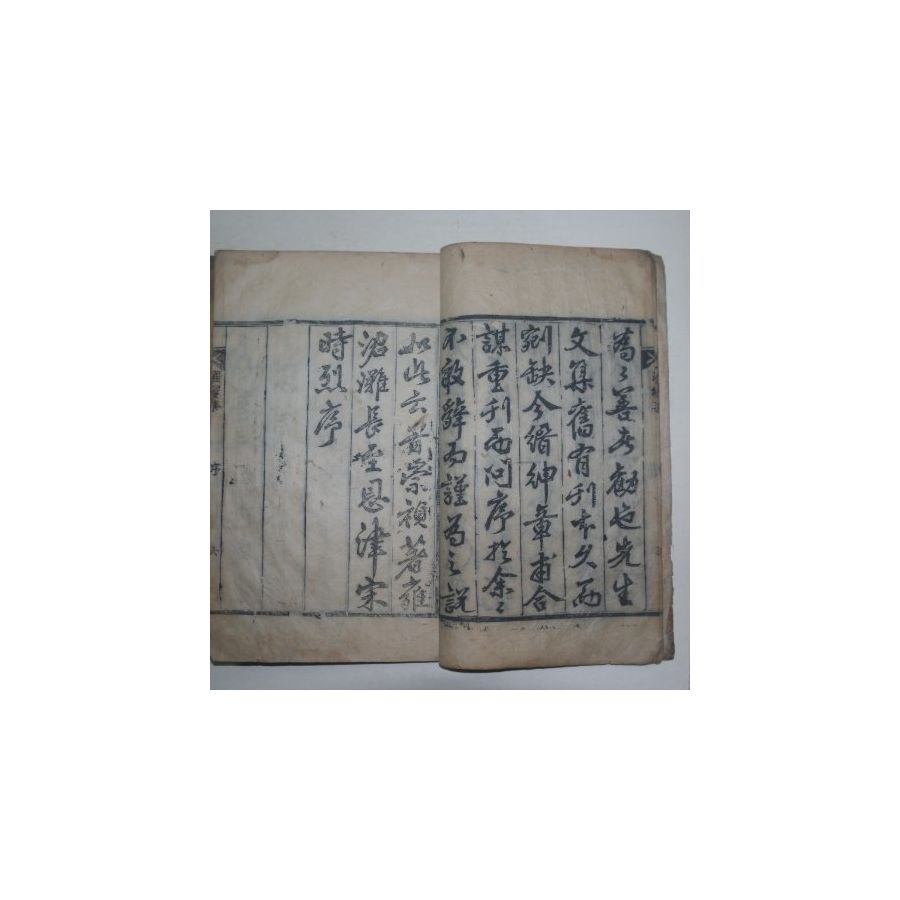 為〻善者勸也先生
文集舊有刊本久而
剜缺今縉紳章甫合
謀重刊而問序於余〻
不敢辭而謹為之說
如此云崇禎著雍
涒灘長至恩津宋
時烈序
序
六